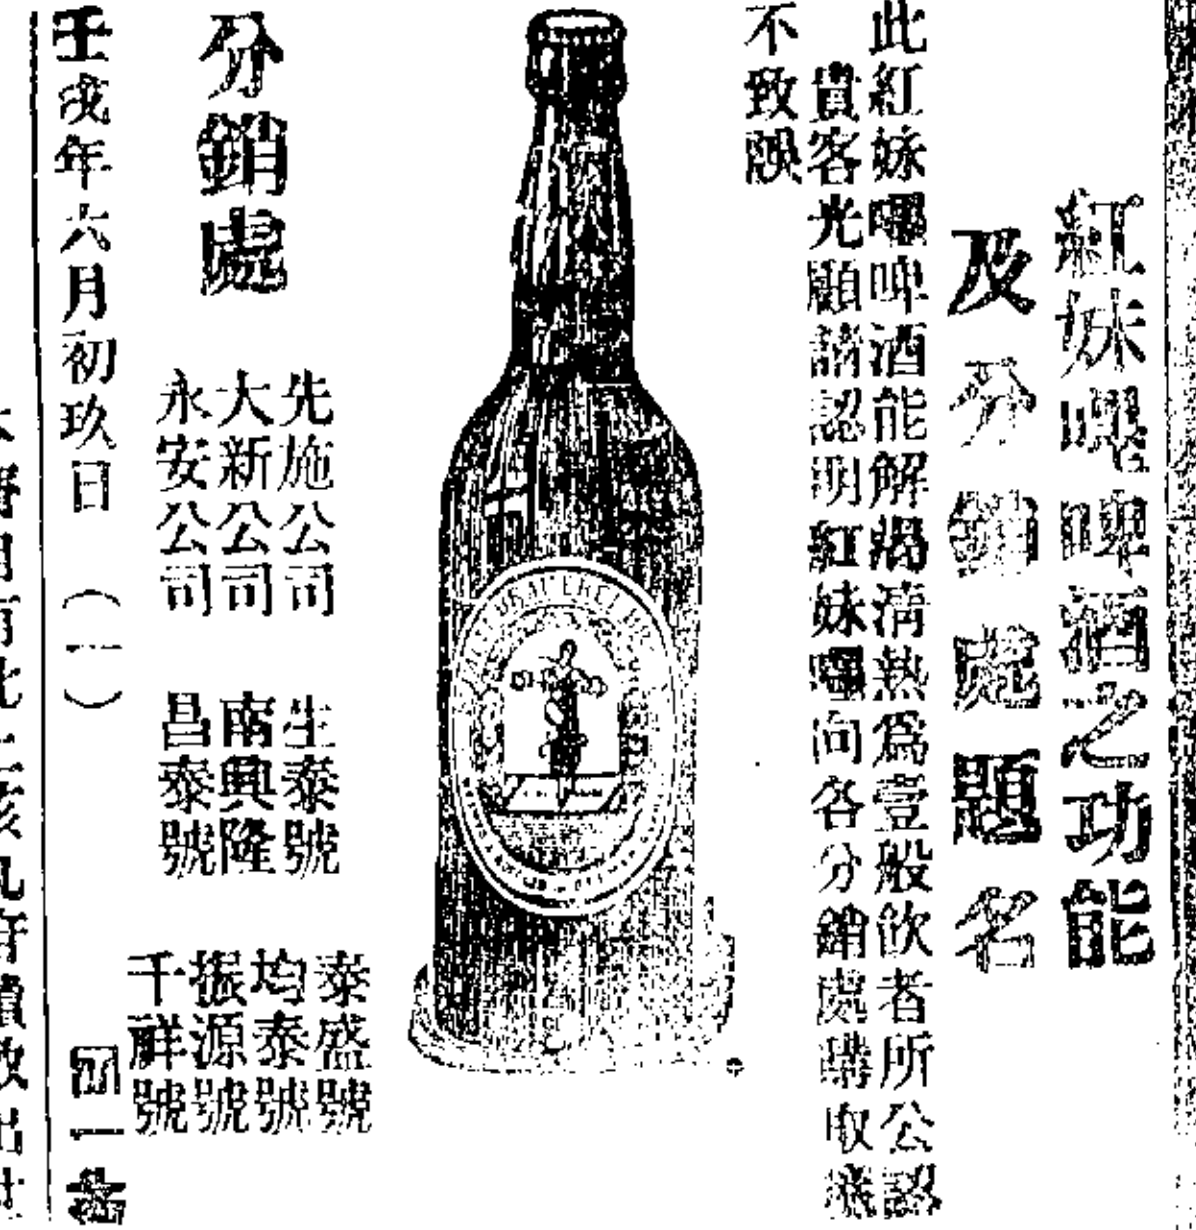 紅妹嘿啤酒之功能
及分銷處題名
此紅妹嘿啤酒能解渴淸熱爲壹般飲者所公認
貴客光顧請認明紅妹嘿向各分銷處購取
不致誤
分銷處
先施公司
大新公司
永安公司
生泰號
南興隆
昌泰號
泰盛號
均泰號
振源號
千祥號
壬戌年六月初玖日
(一)